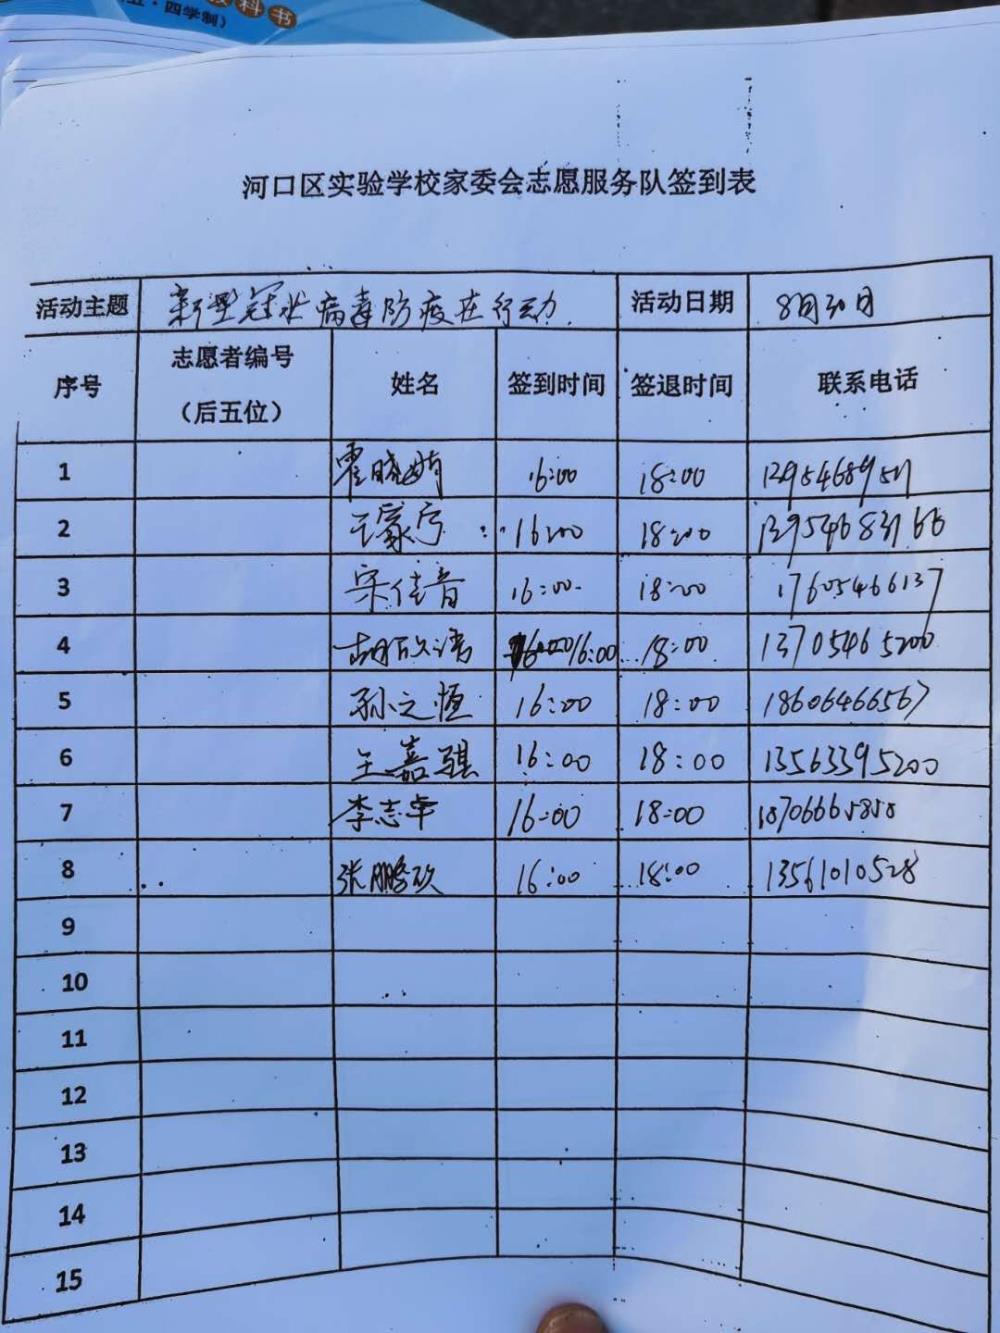 科书
五·四学制)
河口区实验学校家委会志愿服务队签到表
活动主题 新型冠状病毒防疫在行动 活动日期 8月30日
序号 志愿者编号（后五位） 姓名 签到时间 签退时间 联系电话
1 晓 16:00 18:00
2 王家宁 16:00 18:00 13954683166
3 宋佳音 16:00 18:00 17605466137
4 胡欣 16:00 18:00 13705465200
5 孙之恒 16:00 18:00 18606466567
6 王嘉骐 16:00 18:00 13563395200
7 李志军 16:00 18:00 18706665858
8 张鹏 16:00 18:00 13561010528
9
10
11
12
13
14
15